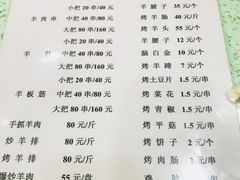 小把 20 串/40 元
羊肉串 中把 40 串/80 元
大把 80 串/160 元
小把 20 串/40 元
羊 中把 40 串/80 元
大把 80 串/160 元
小把 20 串/40 元
羊板筋 中把 40 串/80 元
大把 80 串/160 元
手抓羊肉 80 元/斤
炒羊排 80 元/斤
烤羊排 80 元/斤
爆炒羊肉 55 元/盘
羊腰子 35 元/个
烤羊 40 元/个
烤羊头 55 元/个
羊腱子 12 元/个
脑白金 10 元/个
烤羊蹄 7 元/个
烤土豆片 1.5 元/串
烤菜花 1.5 元/串
烤青椒 1.5 元/串
烤平菇 1.5 元/串
烤饼子 2 元/个
烤肉肠 2 元/串